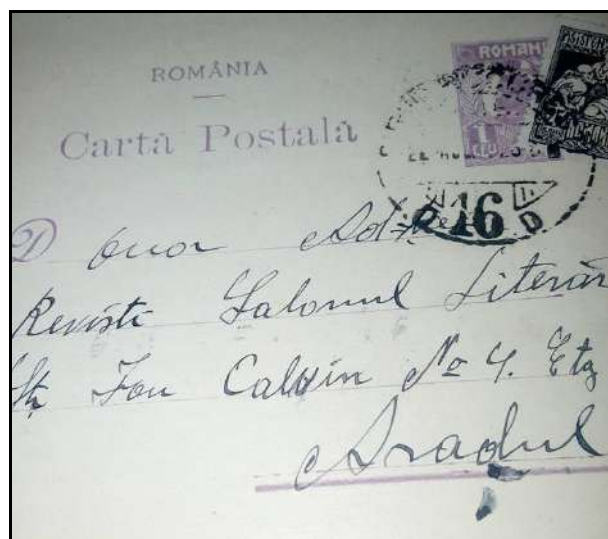 ROMÂNIA
Carta Postală
ROMANI
1
LEU
ASISTEN
16
D
Onor
Revisti Salonul Literar
Str Ion Calvin No 4. Etg
Aradul